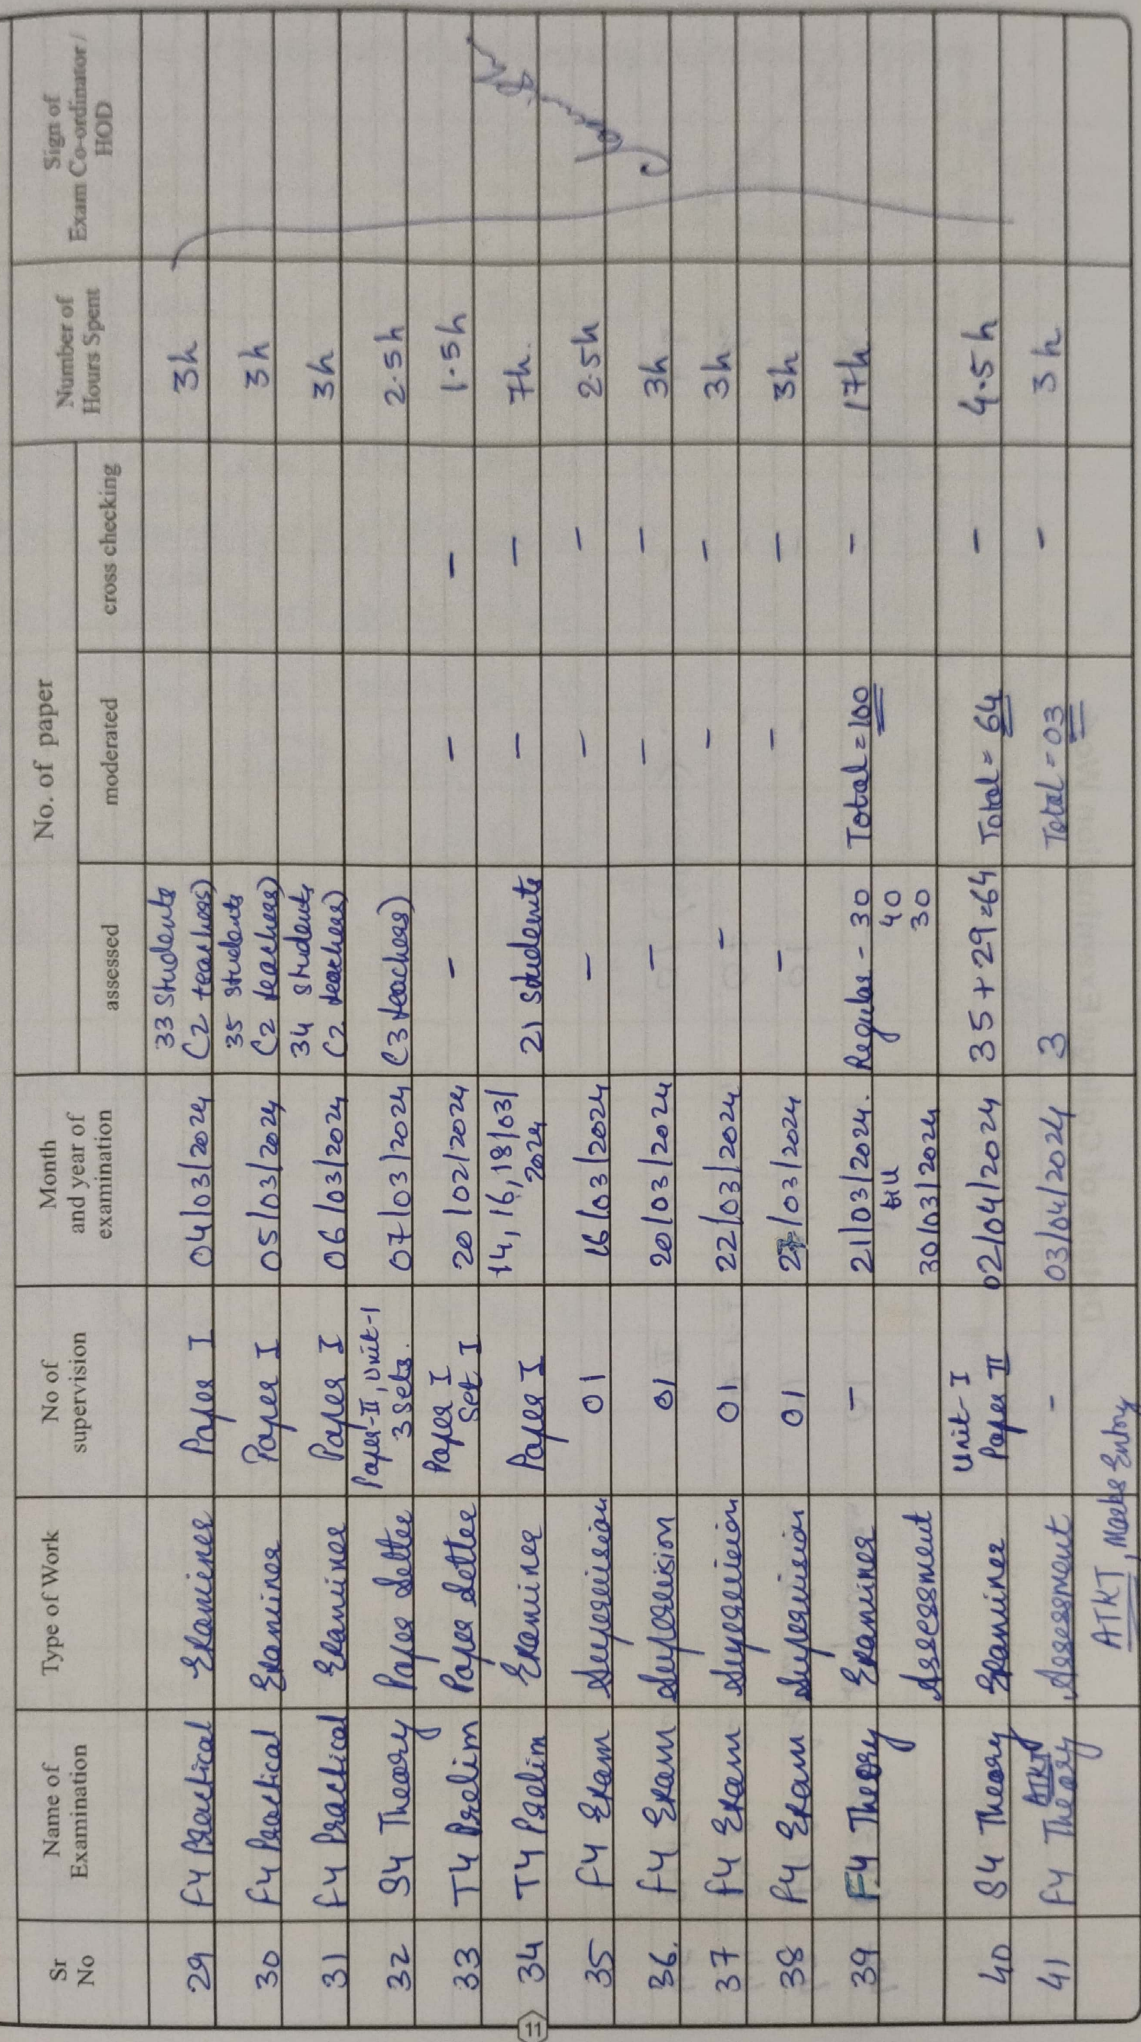 Sr No | Name of Examination | Type of Work | No of supervision | Month and year of examination | No. of paper | Number of Hours Spent | Sign of Exam Co-ordinator / HOD
assessed | moderated | cross checking
29 | FY Practical | Examiner | Paper I | 04/03/2024 | 33 Students (2 teachers) | 3h
30 | FY Practical | Examiner | Paper I | 05/03/2024 | 35 Students (2 teachers) | 3h
31 | FY Practical | Examiner | Paper I | 06/03/2024 | 34 Students (2 teachers) | 3h
32 | SY Theory | Paper Setter | Paper-II, Unit-1 3 Sets. | 07/03/2024 | (3 teachers) | 2.5h
33 | TY Prelim | Paper Setter | Paper I Set I | 20/02/2024 | - | - | - | 1.5h
34 | TY Prelim | Examiner | Paper I | 14, 16, 18/03/2024 | 21 Students | - | - | 7h.
35 | FY Exam | Supervision | 01 | 16/03/2024 | - | - | - | 2.5h
36. | FY Exam | Supervision | 01 | 20/03/2024 | - | - | - | 3h
37 | FY Exam | Supervision | 01 | 22/03/2024 | - | - | - | 3h
38 | FY Exam | Supervision | 01 | 27/03/2024 | - | - | - | 3h
39 | FY Theory | Examiner | - | 21/03/2024. | Regular - 30 | Total = 100 | - | 17h
till | 40
Assessment | 30/03/2024 | 30
40 | SY Theory | Examiner | Unit-I Paper II | 02/04/2024 | 35 + 29 = 64 | Total = 64 | - | 4.5h
41 | FY Theory ATKT | Assessment | - | 03/04/2024 | 3 | Total = 03 | - | 3h
ATKT, Marks Entry
11